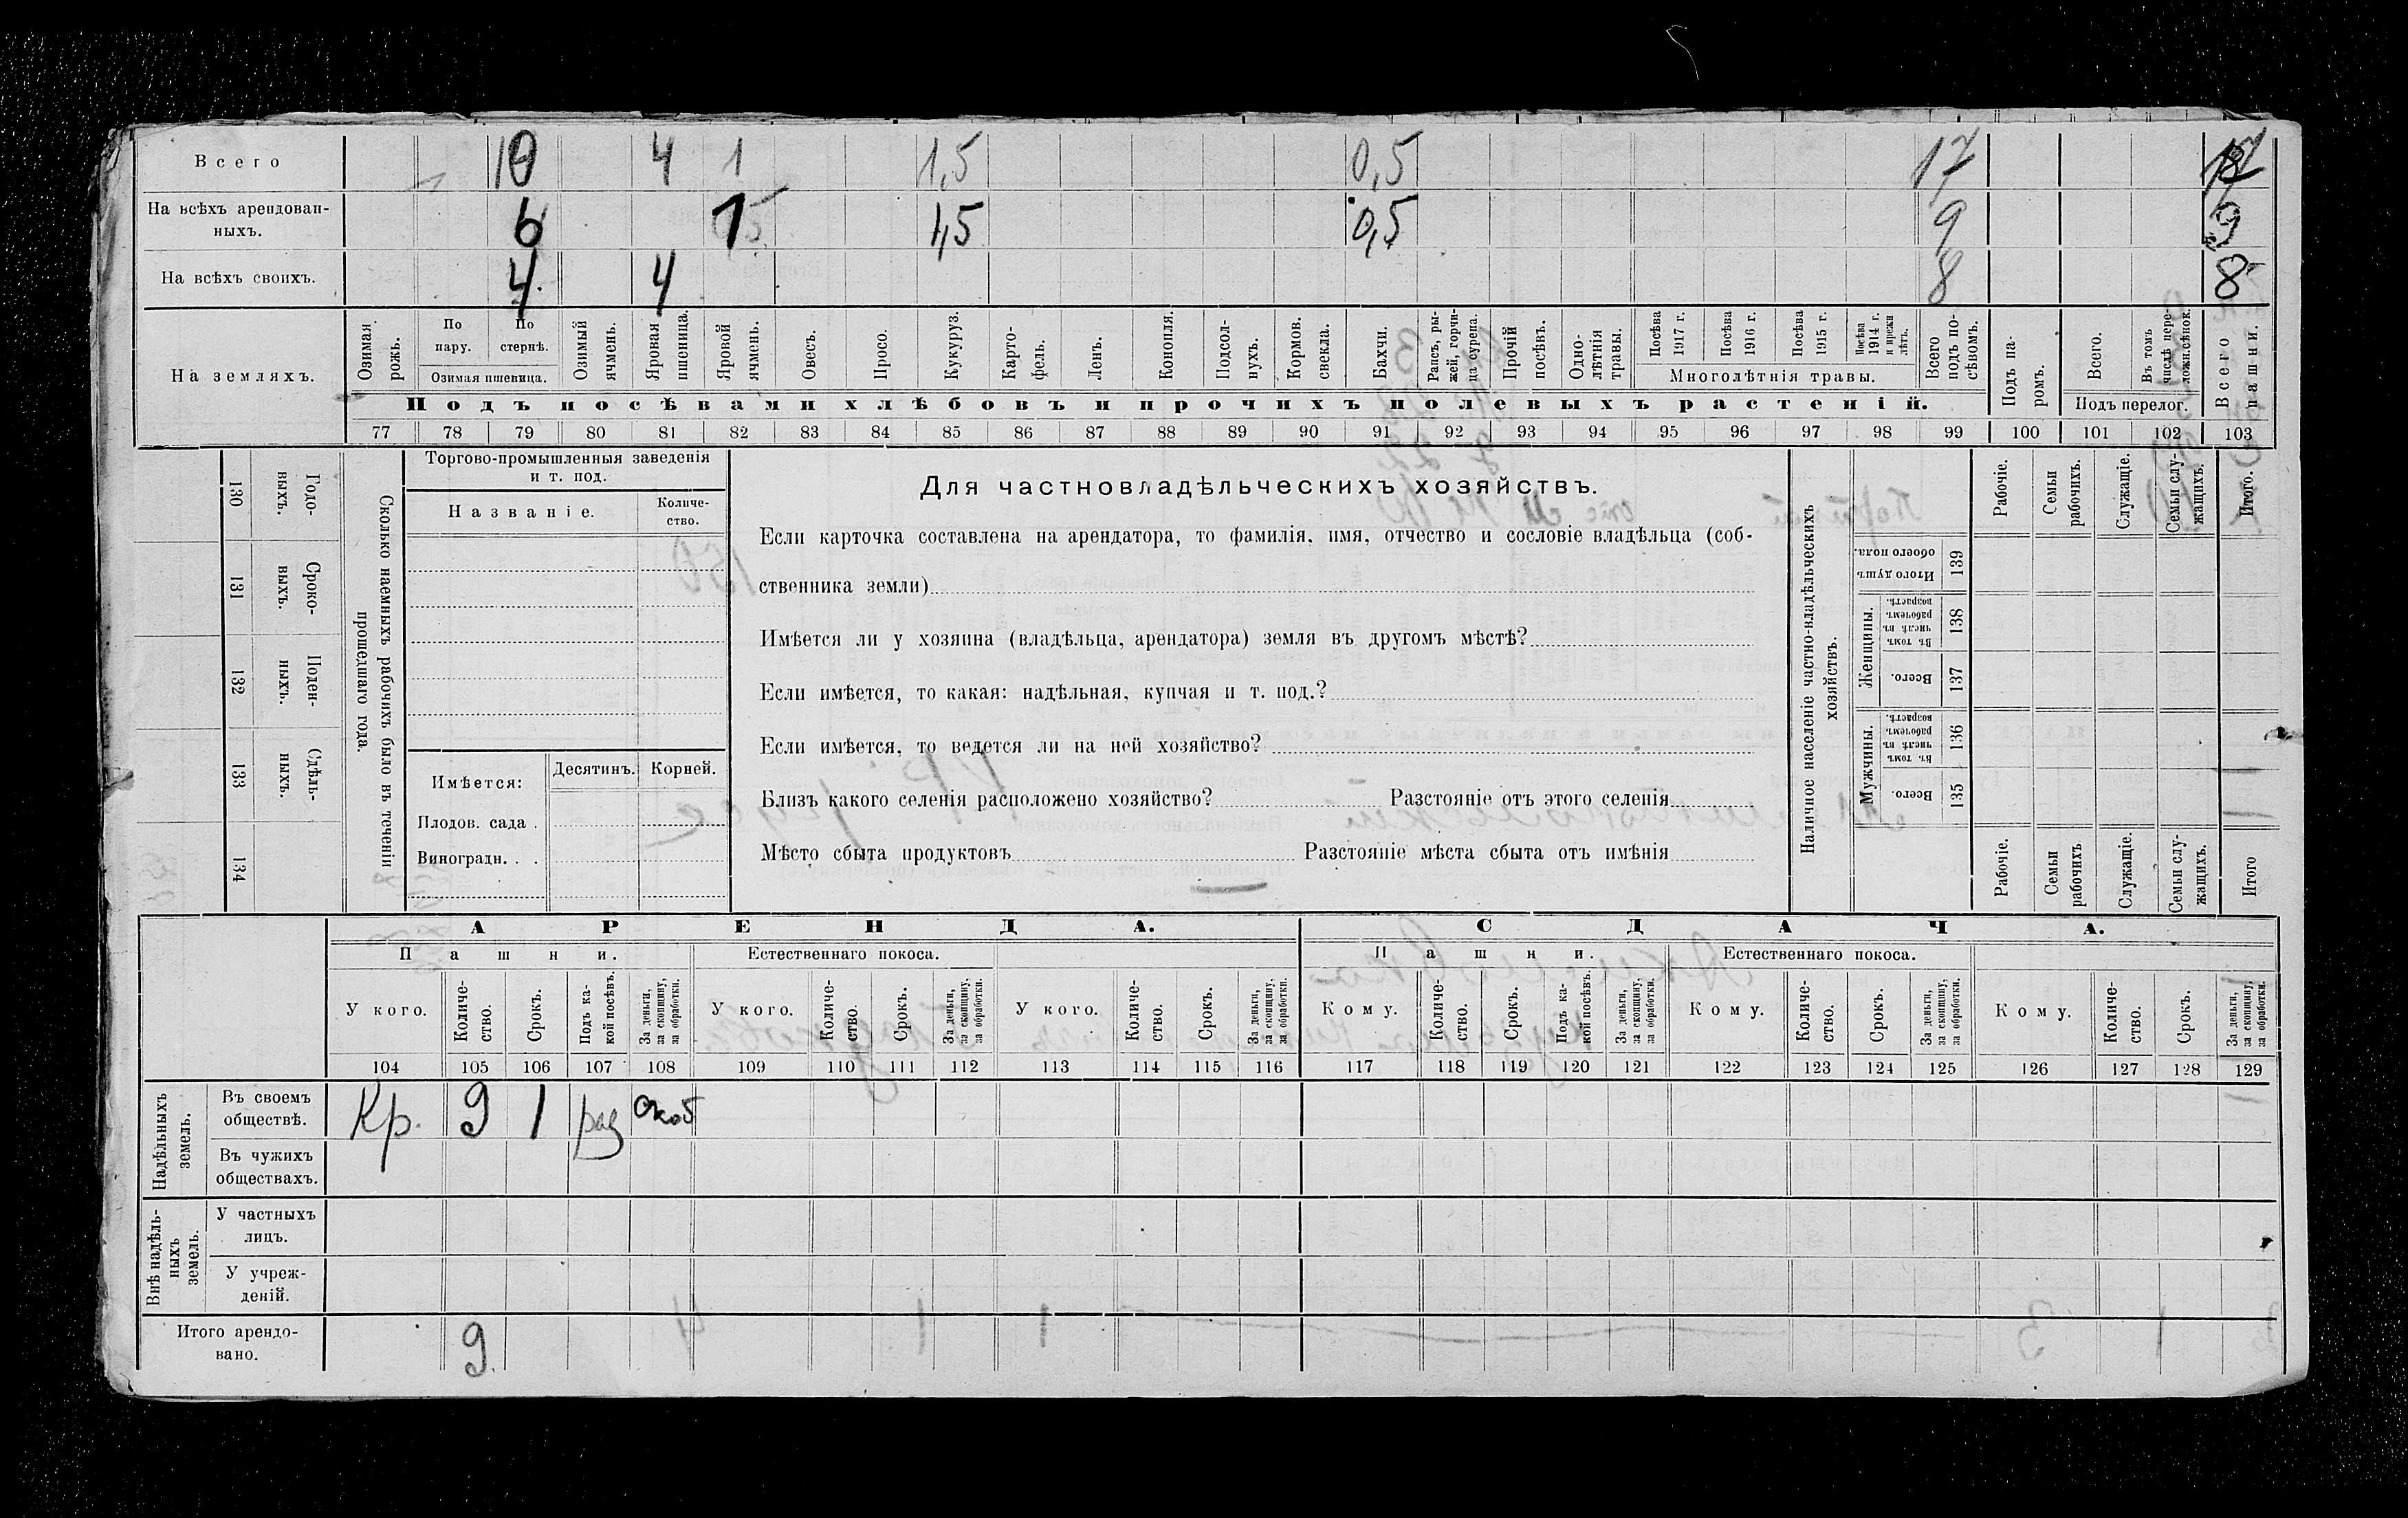 Всего 10 4 1 1,5 0,5 17
На всѣхъ арендован-
ныхъ. 6 1 1,5 0,5 9 9
На всѣхъ своихъ. 4 4 8 8
На земляхъ.
Озимая рожь.
По пару.
По стернѣ.
Озимая пшеница.
Озимый ячмень.
Яровая пшеница.
Яровой ячмень.
Овесъ.
Просо.
Кукуруз.
Карто-
фель.
Ленъ.
Конопля.
Подсол-
нухъ.
Кормов.
свекла.
Бахчи.
Рапсъ, ры-
жей, горчи-
ца сурепа.
Прочій посѣвъ.
Одно-
лѣтнія травы.
Посѣва 1917 г.
Посѣва 1916 г.
Посѣва 1915 г.
Посѣва 1914 г. и прежн лѣтъ.
Многолѣтнія травы.
Всего подъ по-
сѣвомъ.
Подъ посѣвами хлѣбовъ и прочихъ полевыхъ растеній.
Подъ па-
ромъ.
Всего.
Въ томъ числѣ пере-
ложн.сѣнок.
Подъ перелог.
Всего пашни.
77 78 79 80 81 82 83 84 85 86 87 88 89 90 91 92 93 94 95 96 97 98 99 100 101 102 103
130 Годо-
выхъ.
131 Сроко-
выхъ.
132 Поден-
ныхъ.
133 Сдѣль-
ныхъ.
134
Сколько наемныхъ рабочихъ было въ теченіи
прошедшаго года.
Торгово-промышленныя заведенія
и т. под.
Названіе.
Количе-
ство.
Имѣется:
Десятинъ.
Корней.
Плодов. сада .
Виноградн. . .
Для частновладѣльческихъ хозяйствъ.
Если карточка составлена на арендатора, то фамилія, имя, отчество и сословіе владѣльца (соб-
ственника земли)
Имѣется ли у хозяина (владѣльца, арендатора) земля въ другомъ мѣстѣ?
Если имѣется, то какая: надѣльная, купчая и т. под.?
Если имѣется, то ведется ли на ней хозяйство?
Близъ какого селенія расположено хозяйство? Разстояніе отъ этого селенія
Мѣсто сбыта продуктовъ Разстояніе мѣста сбыта отъ имѣнія
Наличное населеніе частно-владѣльческихъ
хозяйствъ.
Рабочіе.
Семьи рабочихъ.
Служащіе.
Семьи слу-
жащихъ.
Итого.
Итого душъ обоего пола. 139
Женщины.
Въ томъ числѣ въ рабочемъ возрастѣ. 138
Всего. 137
Мужчины.
Въ томъ числѣ въ рабочемъ возрастѣ. 136
Всего. 135
Рабочіе.
Семьи рабочихъ
Служащіе.
Семьи слу-
жащихъ.
Итого
АРЕНДА. СДАЧА.
Пашни. Естественнаго покоса. Пашни. Естественнаго покоса.
У кого.
Количе-
ство.
Срокъ.
Подъ ка-
кой посѣвъ.
За деньги, за скопщину, за обработки.
У кого.
Количе-
ство.
Срокъ.
За деньги, за скопщину, за обработки.
У кого.
Количе-
ство.
Срокъ.
За деньги, за скопщину, за обработки.
Кому.
Количе-
ство.
Срокъ.
Подъ ка-
кой посѣвъ.
За деньги, за скопщину, за обработки.
Кому.
Количе-
ство.
Срокъ.
За деньги, за скопщину, за обработки.
Кому.
Количе-
ство.
Срокъ.
За деньги, за скопщину, за обработки.
104 105 106 107 108 109 110 111 112 113 114 115 116 117 118 119 120 121 122 123 124 125 126 127 128 129
Надѣльныхъ земель.
Въ своемъ
обществѣ. Кр. 9 1 раз
Въ чужихъ
обществахъ.
Внѣ надѣль-
ныхъ земель.
У частныхъ
лицъ.
У учреж-
деній.
Итого арендо-
вано. 9.